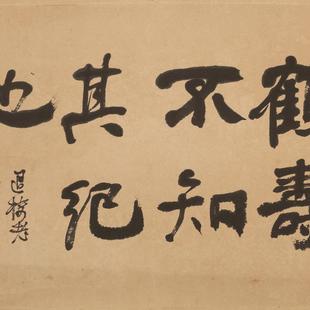 鶴壽
不知
其紀
也
退樓老